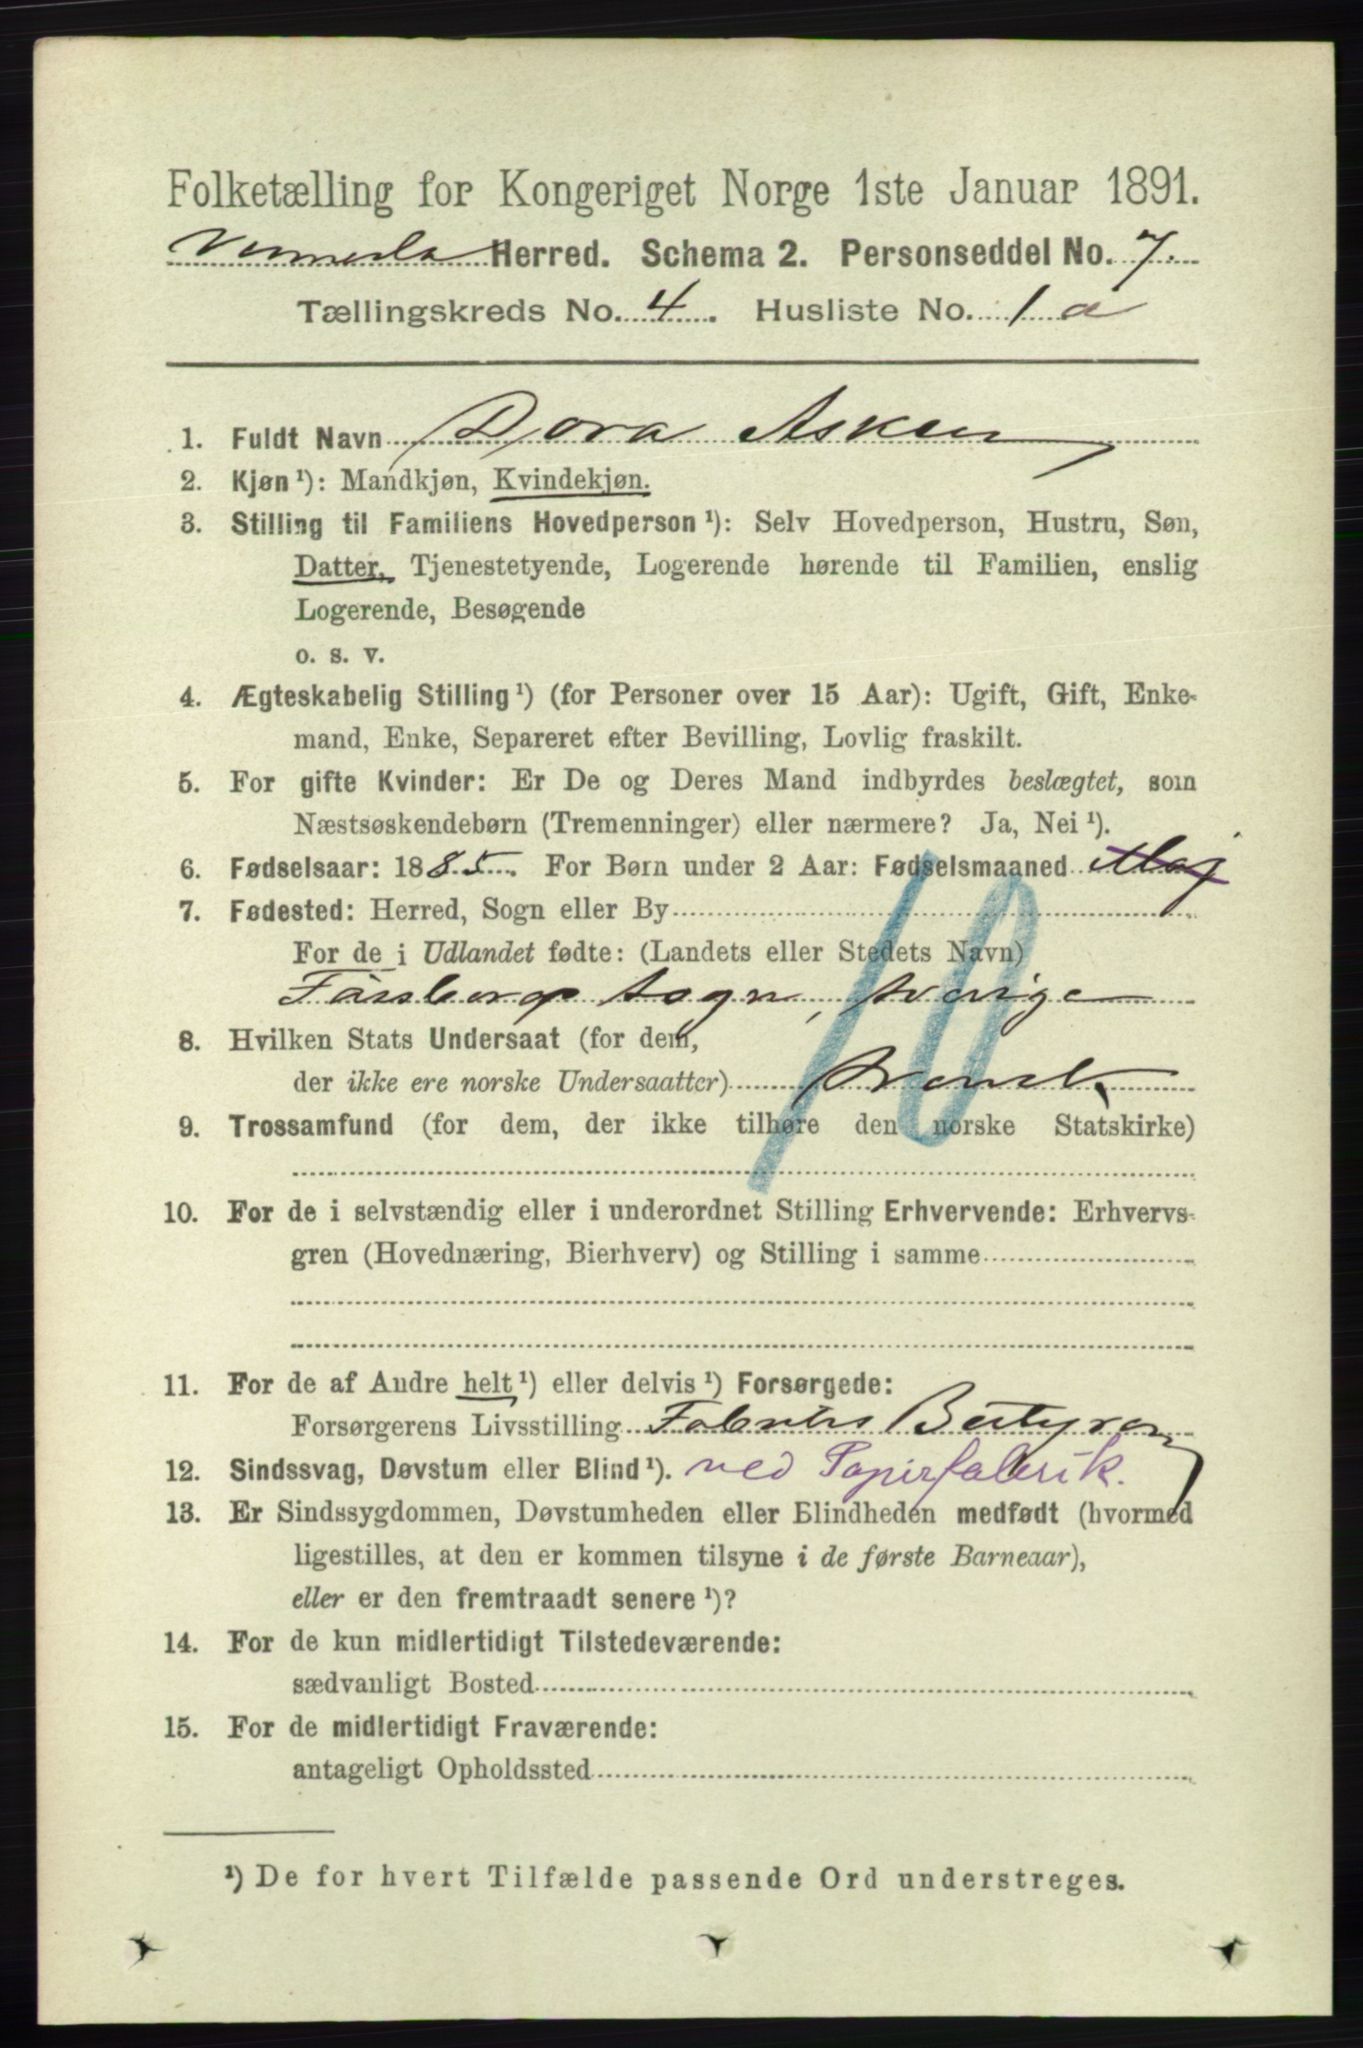 Folketælling for Kongeriget Norge 1ste Januar 1891.
Vennesla Herred. Schema 2. Personseddel No. 7.
Tællingskreds No. 4. Husliste No. 1 a
1. Fuldt Navn Dora Asker
2. Kjøn ¹): Mandkjøn, Kvindekjøn.
3. Stilling til Familiens Hovedperson ¹): Selv Hovedperson, Hustru, Søn,
Datter, Tjenestetyende, Logerende hørende til Familien, enslig
Logerende, Besøgende
o. s. v.
4. Ægteskabelig Stilling ¹) (for Personer over 15 Aar): Ugift, Gift, Enke-
mand, Enke, Separeret efter Bevilling, Lovlig fraskilt.
5. For gifte Kvinder: Er De og Deres Mand indbyrdes beslægtet, som
Næstsøskendebørn (Tremenninger) eller nærmere? Ja, Nei ¹).
6. Fødselsaar: 1885. For Børn under 2 Aar: Fødselsmaaned Maj
7. Fødested: Herred, Sogn eller By
For de i Udlandet fødte: (Landets eller Stedets Navn)
Sogn, Sverige
8. Hvilken Stats Undersaat (for dem,
der ikke ere norske Undersaatter) Svensk
10
9. Trossamfund (for dem, der ikke tilhøre den norske Statskirke)
10. For de i selvstændig eller i underordnet Stilling Erhvervende: Erhvervs-
gren (Hovednæring, Bierhverv) og Stilling i samme
11. For de af Andre helt ¹) eller delvis ¹) Forsørgede:
Forsørgerens Livsstilling Fabriks Bestyrer
12. Sindssvag, Døvstum eller Blind ¹). ved Papirfabrik.
13. Er Sindssygdommen, Døvstumheden eller Blindheden medfødt (hvormed
ligestilles, at den er kommen tilsyne i de første Barneaar),
eller er den fremtraadt senere ¹)?
14. For de kun midlertidigt Tilstedeværende:
sædvanligt Bosted
15. For de midlertidigt Fraværende:
antageligt Opholdssted
¹) De for hvert Tilfælde passende Ord understreges.